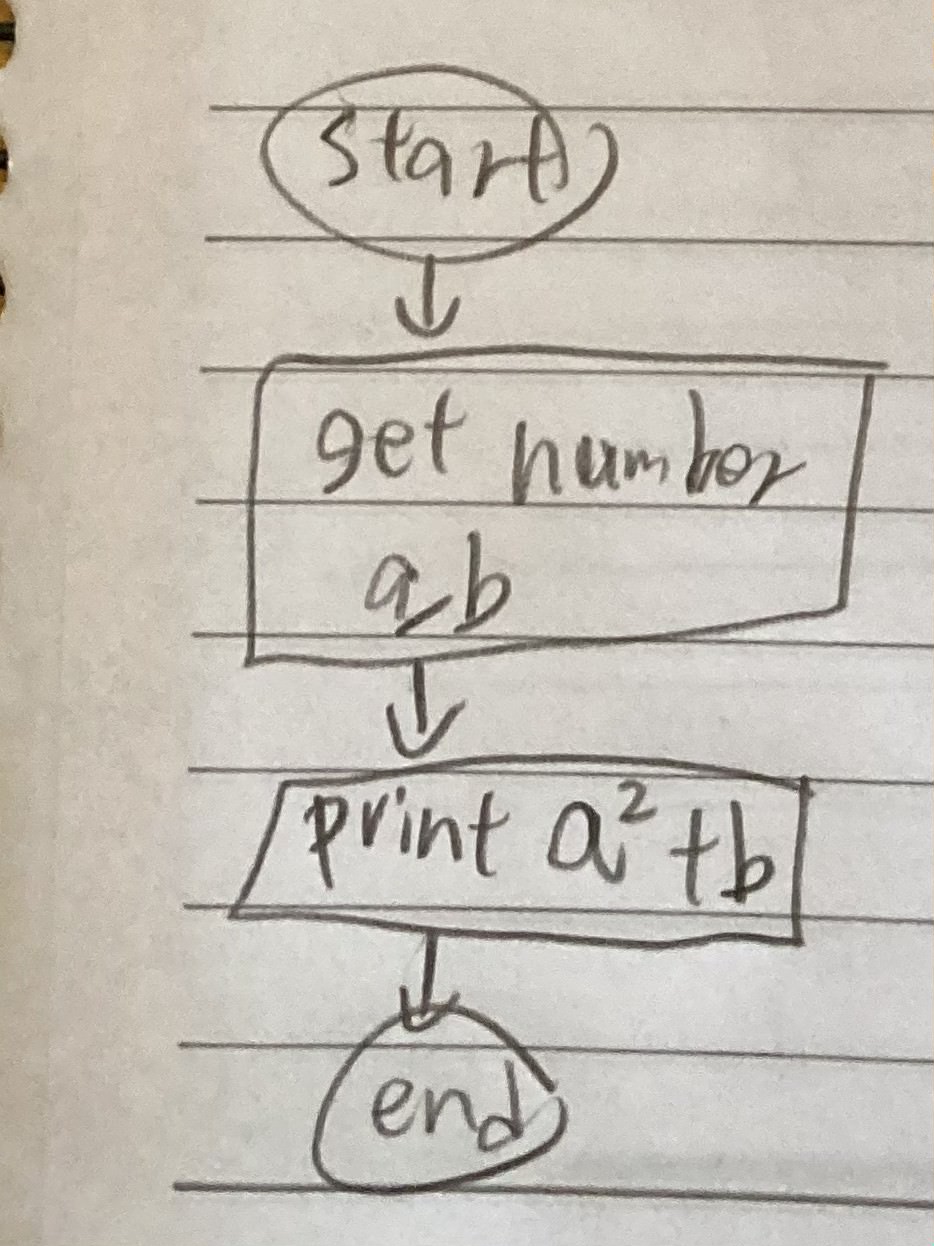 start
get number
a, b
print a² + b
end